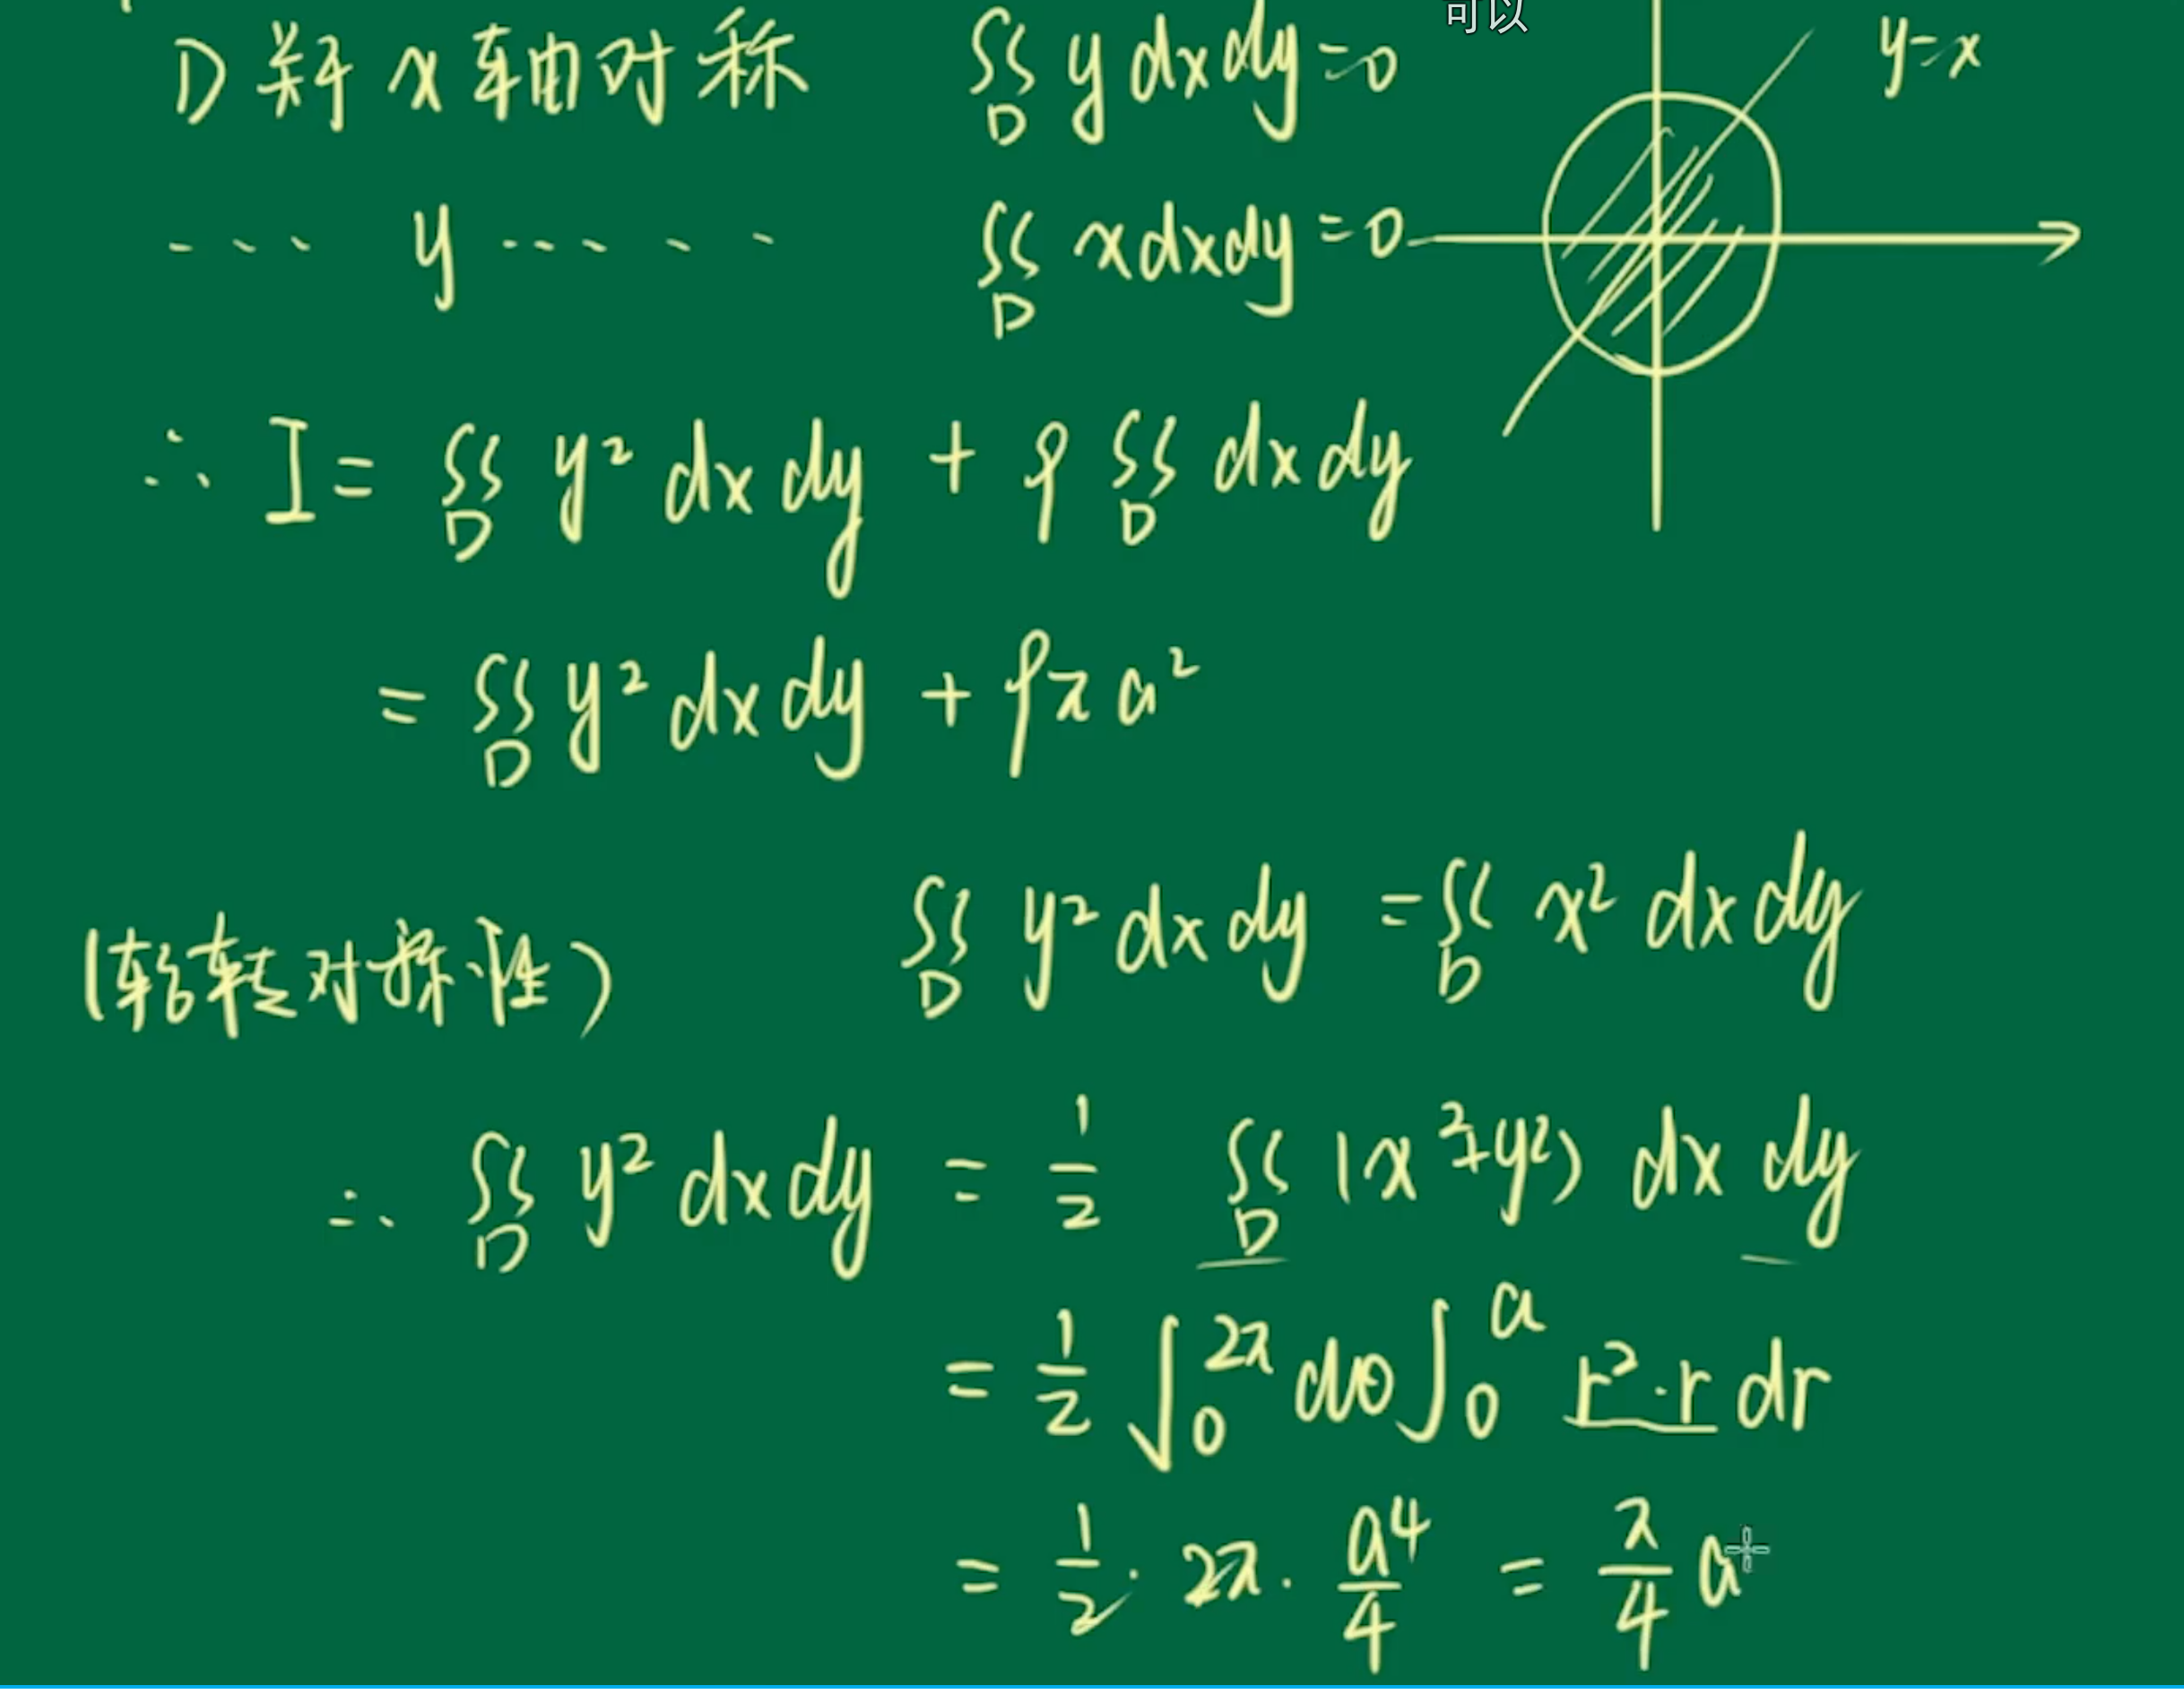 可以
D 关于 x 轴对称 ∬_D y dxdy=0
y=x
··· y ····· ∬_D x dxdy=0
∴ I = ∬_D y² dxdy + 9 ∬_D dxdy
= ∬_D y² dxdy + 9π a²
(轮转对称性) ∬_D y² dxdy = ∬_D x² dxdy
∴ ∬_D y² dxdy = 1/2 ∬_D (x²+y²) dx dy
= 1/2 ∫_0^{2π} dθ ∫_0^a r²·r dr
= 1/2 · 2π · a⁴/4 = π/4 a